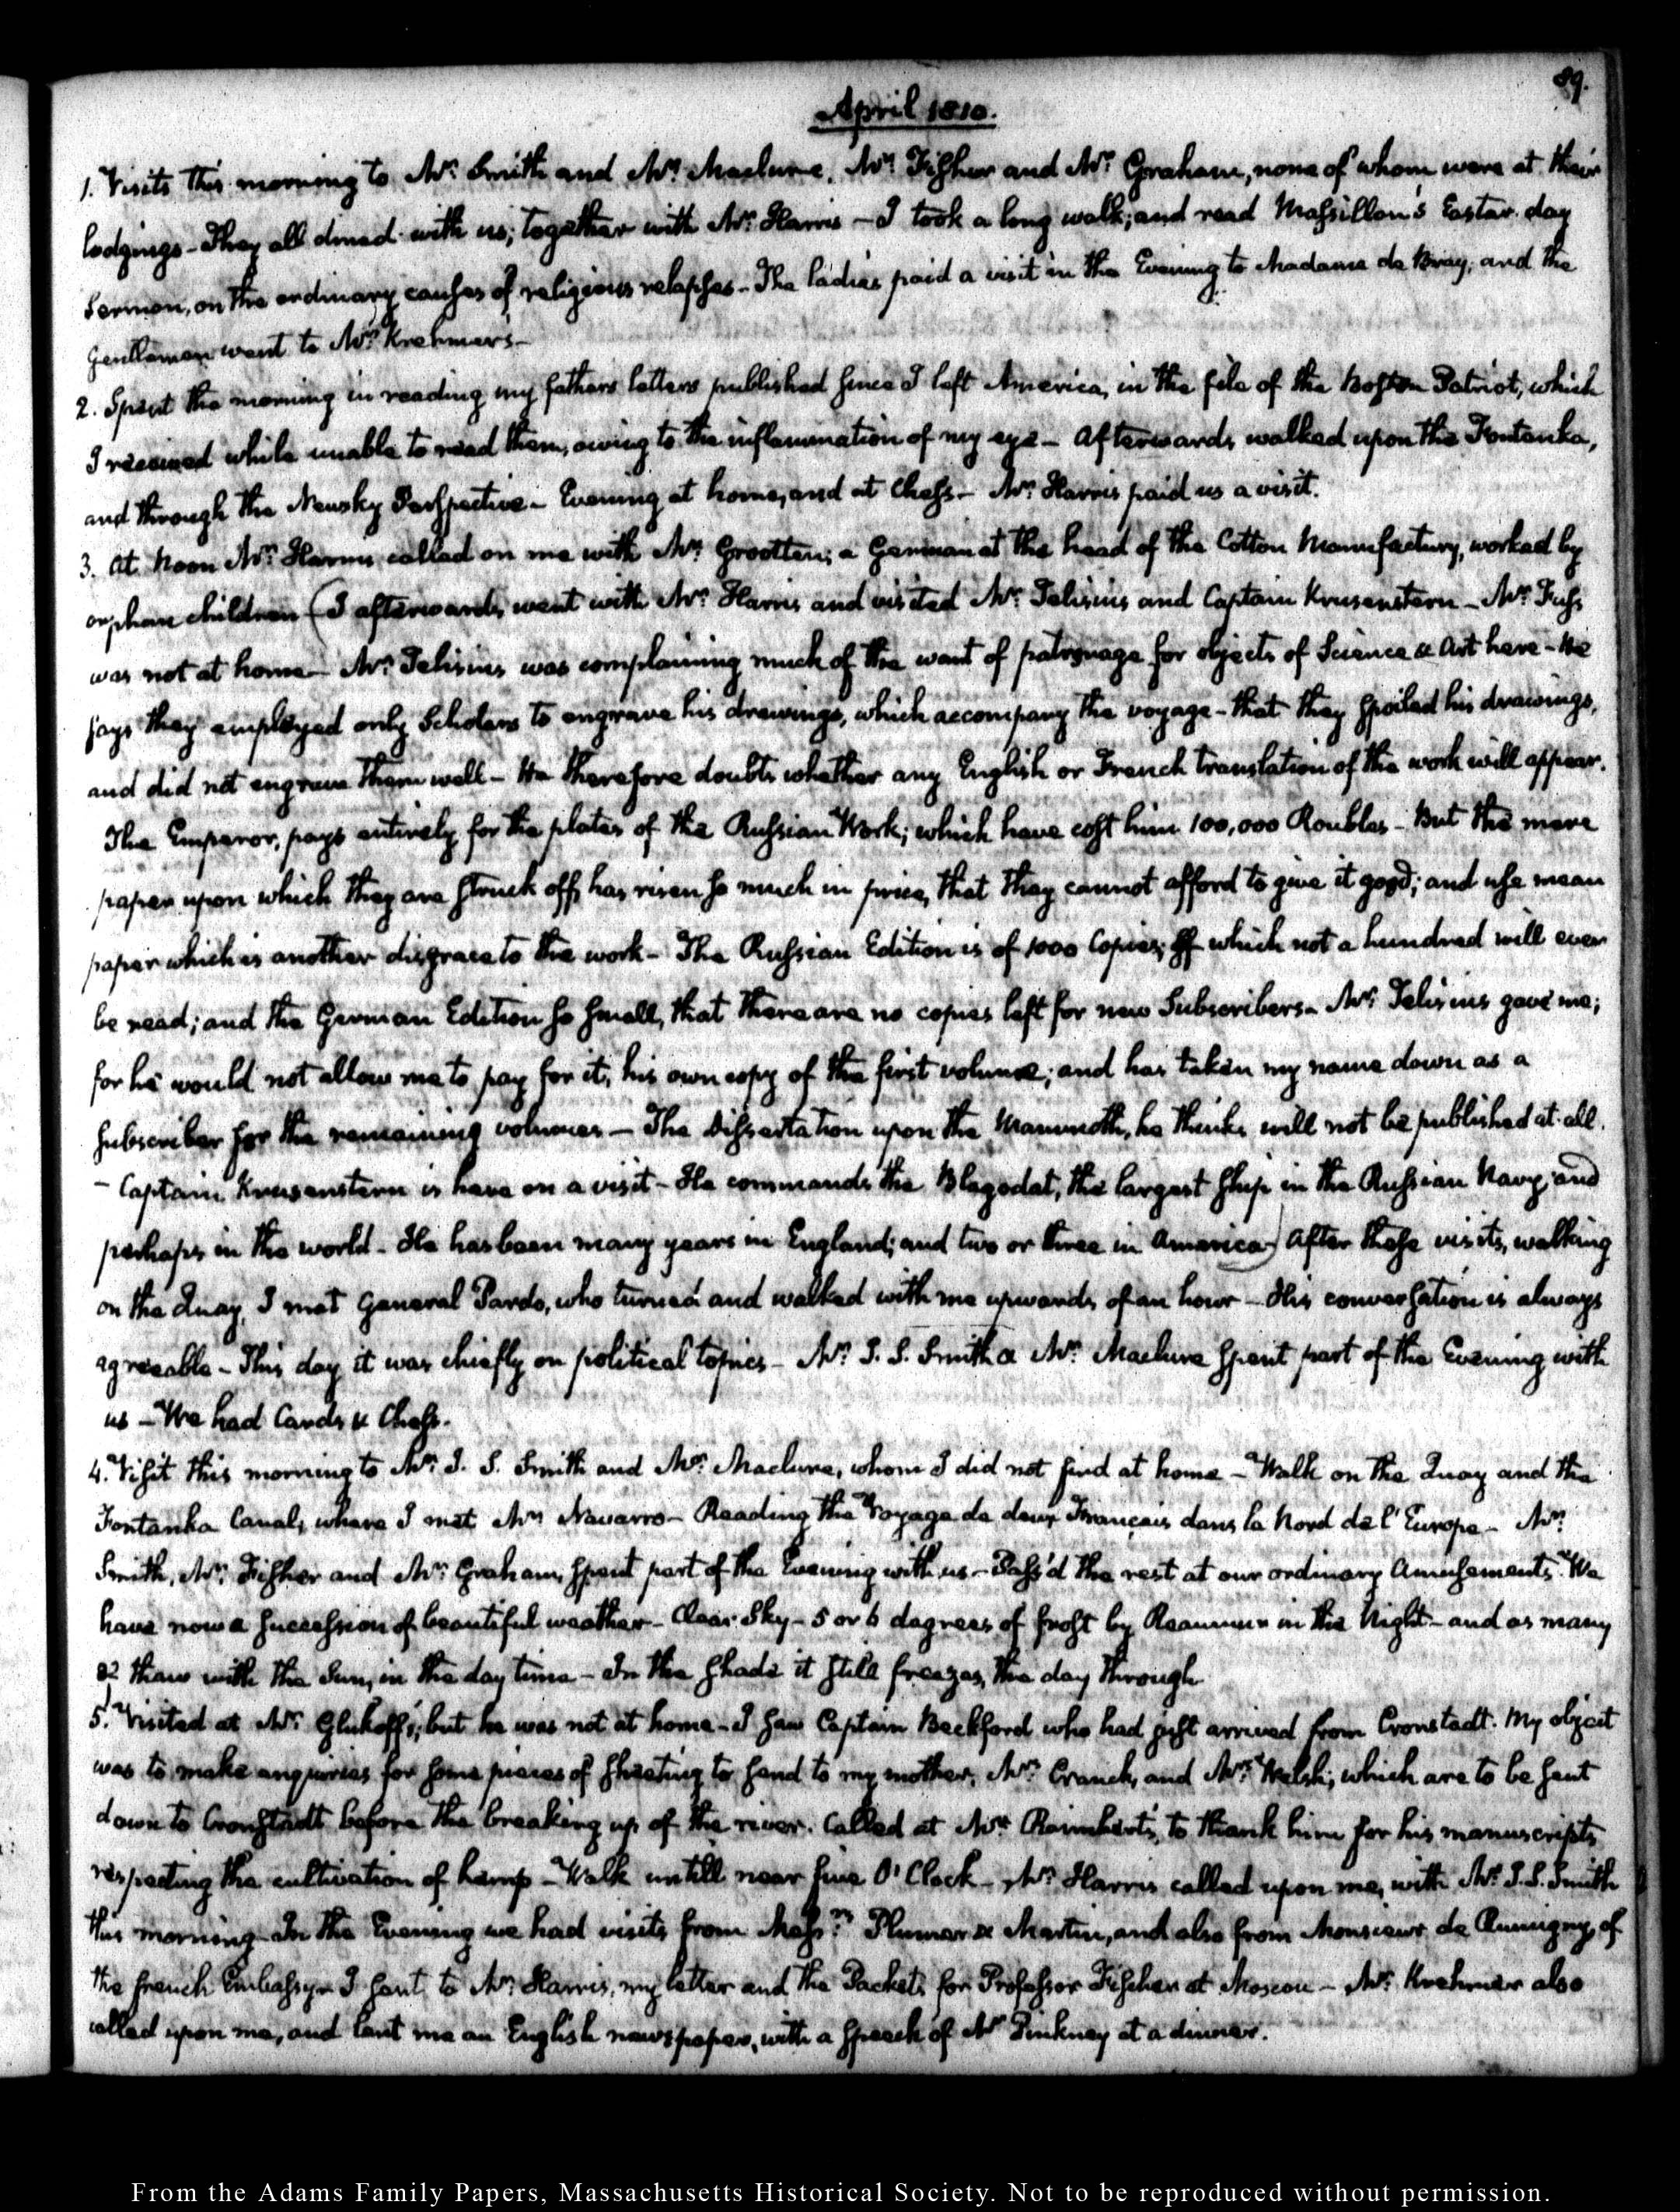 89.
April 1810.
1. Visits this morning to Mr. Smith and Mr. Maclure, Mr. Fisher and Mr. Graham, none of whom were at their
lodgings - They all dined with us; together with Mr. Harris - I took a long walk; and read Massillon's Easter day
Sermon, on the ordinary causes of religious relapses - The ladies paid a visit in the Evening to Madame de Bray; and the
Gentlemen went to Mr. Krehmer's -
2. Spent the morning in reading my fathers letters published since I left America, in the file of the Boston Patriot, which
I received while unable to read them, owing to the inflammation of my eye - Afterwards walked upon the Fontanka,
and through the Newsky Perspective - Evening at home, and at Chess - Mr. Harris paid us a visit.
3. At Noon Mr. Harris called on me with Mr. Grootten; a German at the head of the Cotton Manufactury, worked by
orphan children (I afterwards went with Mr. Harris and visited Mr. Telisius and Captain Krusenstern - Mr. Fuss
was not at home - Mr. Telisius was complaining much of the want of patronage for objects of Science & Art here - He
says they employed only Scholars to engrave his drawings, which accompany the voyage - that they spoiled his drawings,
and did not engrave them well - He therefore doubts whether any English or French translation of the work will appear.
The Emperor, pays entirely for the plates of the Russian Work; which have cost him 100,000 Roubles - But the mere
paper upon which they are struck off, has risen so much in price, that they cannot afford to give it good; and use mean
paper which is another disgrace to the work - The Russian Edition is of 1000 Copies; of which not a hundred will ever
be read; and the German Edition so small, that there are no copies left for new Subscribers - Mr. Telisius gave me;
for he would not allow me to pay for it, his own copy of the first volume; and has taken my name down as a
subscriber for the remaining volumes - The dissertation upon the Mammoth, he thinks will not be published at all.
- Captain Krusenstern is here on a visit - He commands the Blagodat, the largest ship in the Russian Navy, and
perhaps in the world - He has been many years in England; and two or three in America) After these visits, walking
on the Quay, I met General Pardo, who turned and walked with me upwards of an hour - His conversation is always
agreeable - This day it was chiefly on political topics - Mr. J. S. Smith & Mr. Maclure spent part of the Evening with
us - We had Cards & Chess.
4. Visit this morning to Mr. J. S. Smith and Mr. Maclure, whom I did not find at home - Walk on the Quay and the
Fontanka Canal, where I met Mr. Navarro - Reading the Voyage de deux Français dans le Nord de l'Europe - Mr.
Smith, Mr. Fisher and Mr. Graham, spent part of the Evening with us - Pass'd the rest at our ordinary Amusements. We
have now a succession of beautiful weather - Clear Sky - 5 or 6 degrees of frost by Reaumur in the Night - and as many
of thaw with the Sun, in the day time - In the shade it still freezes, the day through
5. Visited at Mr. Glukoff's; but he was not at home - I saw Captain Beckford who had just arrived from Cronstadt. My object
was to make enquiries for some pieces of sheeting to send to my mother, Mrs. Cranch, and Mrs. Welsh; which are to be sent
down to Cronstadt before the breaking up of the river. Called at Mr. Raimbert's, to thank him for his manuscripts
respecting the cultivation of hemp - Walk untill near five O'Clock - Mr. Harris called upon me, with Mr. J. S. Smith
this morning - In the Evening we had visits from Messrs. Plummer & Martin, and also from Monsieur de Rumigny, of
the french Embassy - I sent to Mr. Harris, my letter and the Packets for Professor Fischer at Moscow - Mr. Krehmer also
called upon me, and lent me an English newspaper, with a speech of Mr. Pinkney at a dinner.
From the Adams Family Papers, Massachusetts Historical Society. Not to be reproduced without permission.